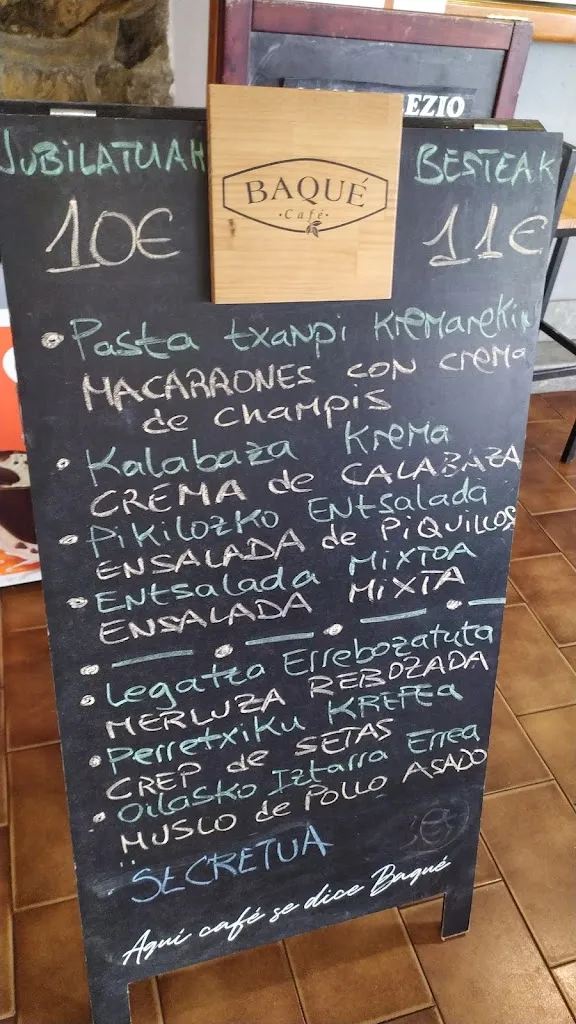 EZIO
JUBILATUAK
BESTEAK
BAQUÉ
·Café·
10€
11€
Pasta txanpi kremarekin
MACARRONES CON crema
de champis
Kalabaza Krema
CREMA de CALABAZA
Pikilozko Entsalada
ENSALADA de PiQUILLOS
Entsalada Mixtoa
ENSALADA MiXTA
Legatza Errebozatuta
MERLUZA REBOZADA
Perretxiku KREPEa
CREP de SETAS
Oilasko Iztarra Errea
MUSLO de POLLO ASADO
SECRETUA
Aquí café se dice Baqué